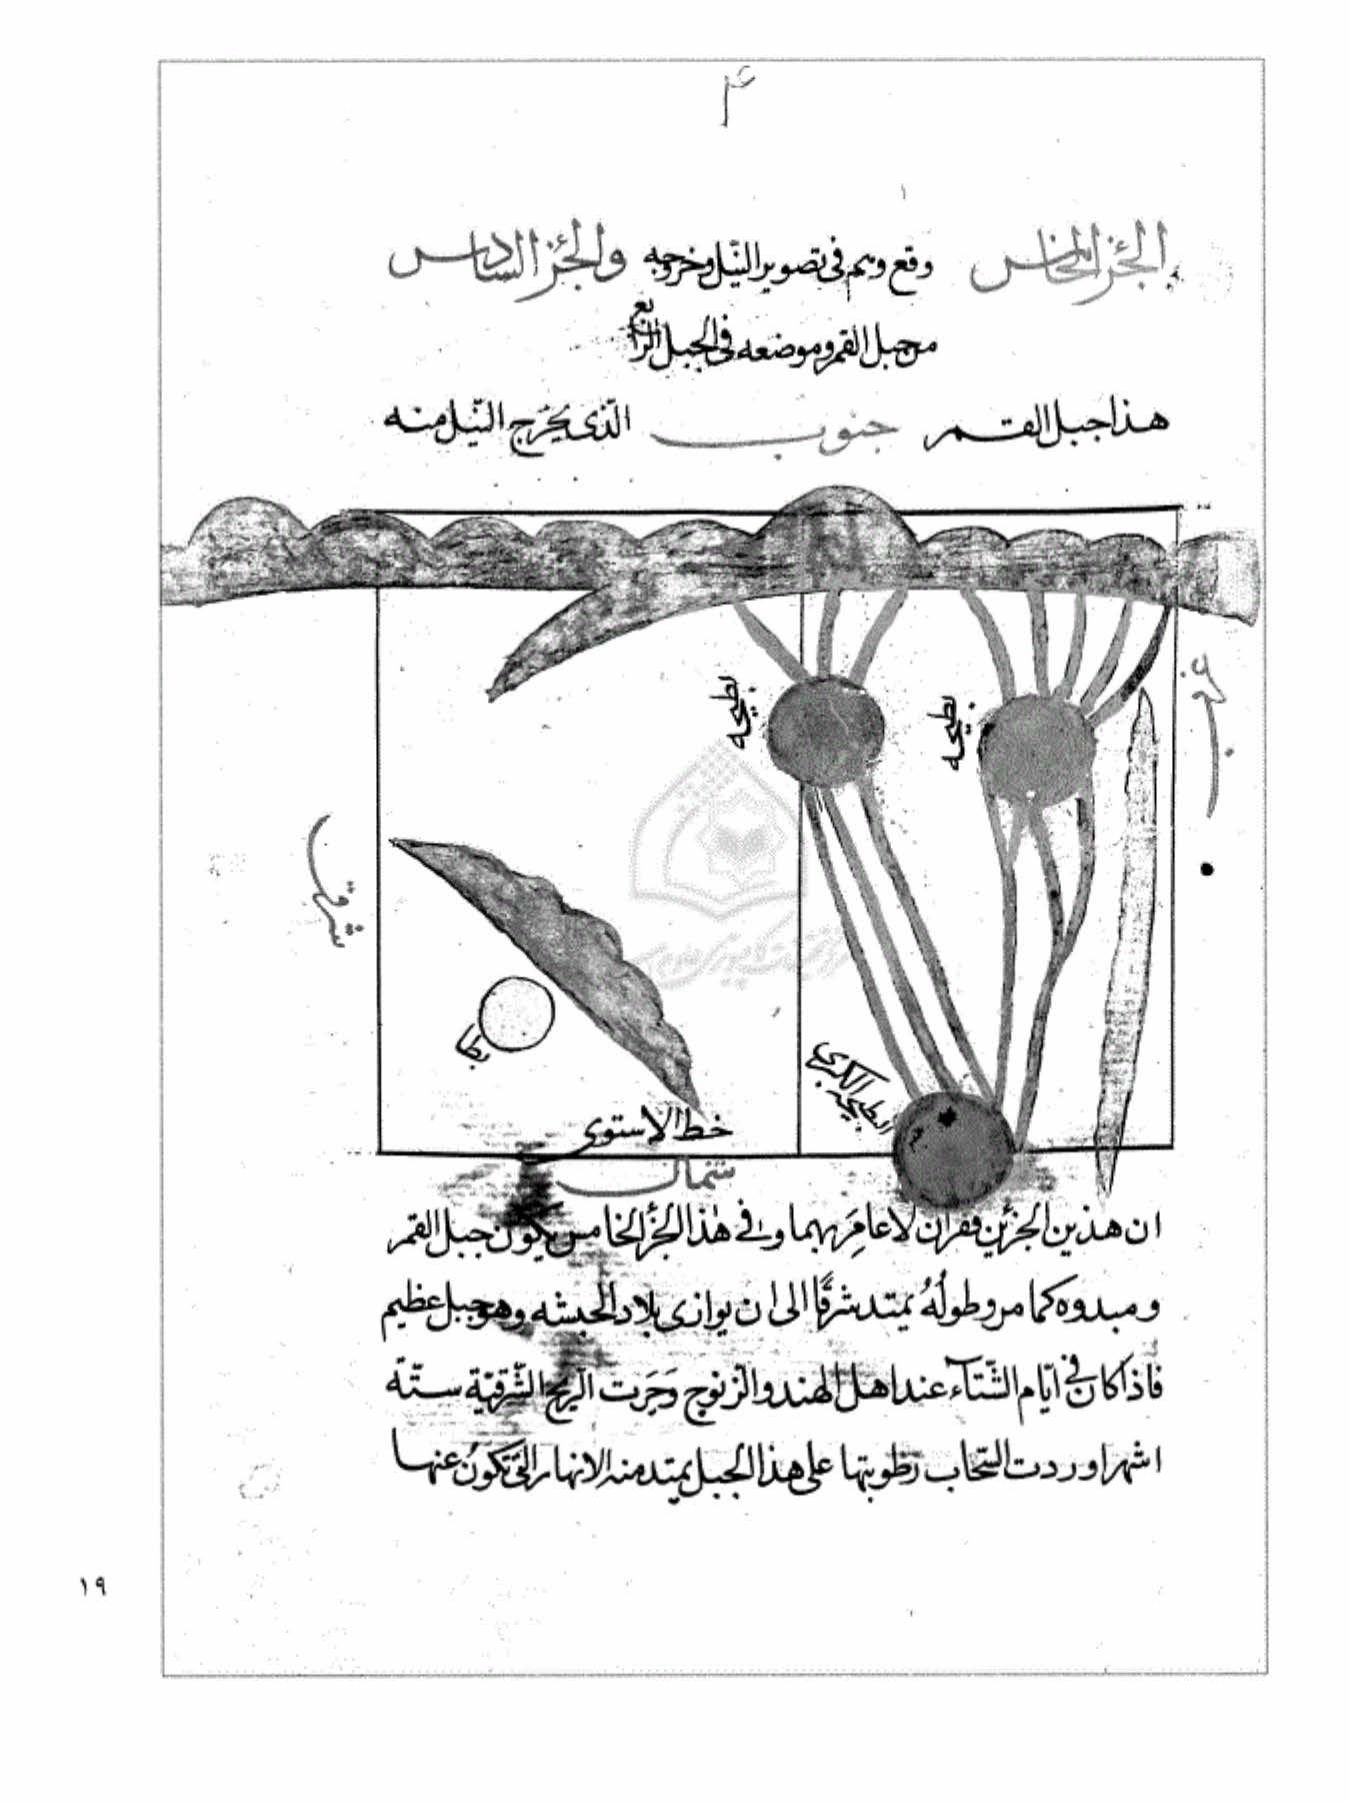 ۴
الجزء الخامس وقع وهم فى تصوير النّيل وخروجه والجزء السادس
من جبل القمر وموضعه فى الجبل الرابع
هذا جبل القمر جنوب الّذى يخرج النّيل منه
بطيحه
بطيحه
غرب
شرق
بطا
البطيحه الكبرى
خط الاستوى
شمال
ان هذين الجزئين قفران لا عامِرَ بهما وفى هذا الجزء الخامس يكون جبل القمر
ومبدوه كما مر وطولُهُ يمتد شرقًا الى ان يوازى بلاد الحبشه وهو جبل عظيم
فاذا كان فى ايّام الشّتآء عند اهل الهند والزنوج وَجَرَت الريح الشّرقيّة ستّة
اشهر اوردت السّحاب رطوبتها على هذا الجبل يمتد منه الانهار الّتى تكونُ عنها
١٩